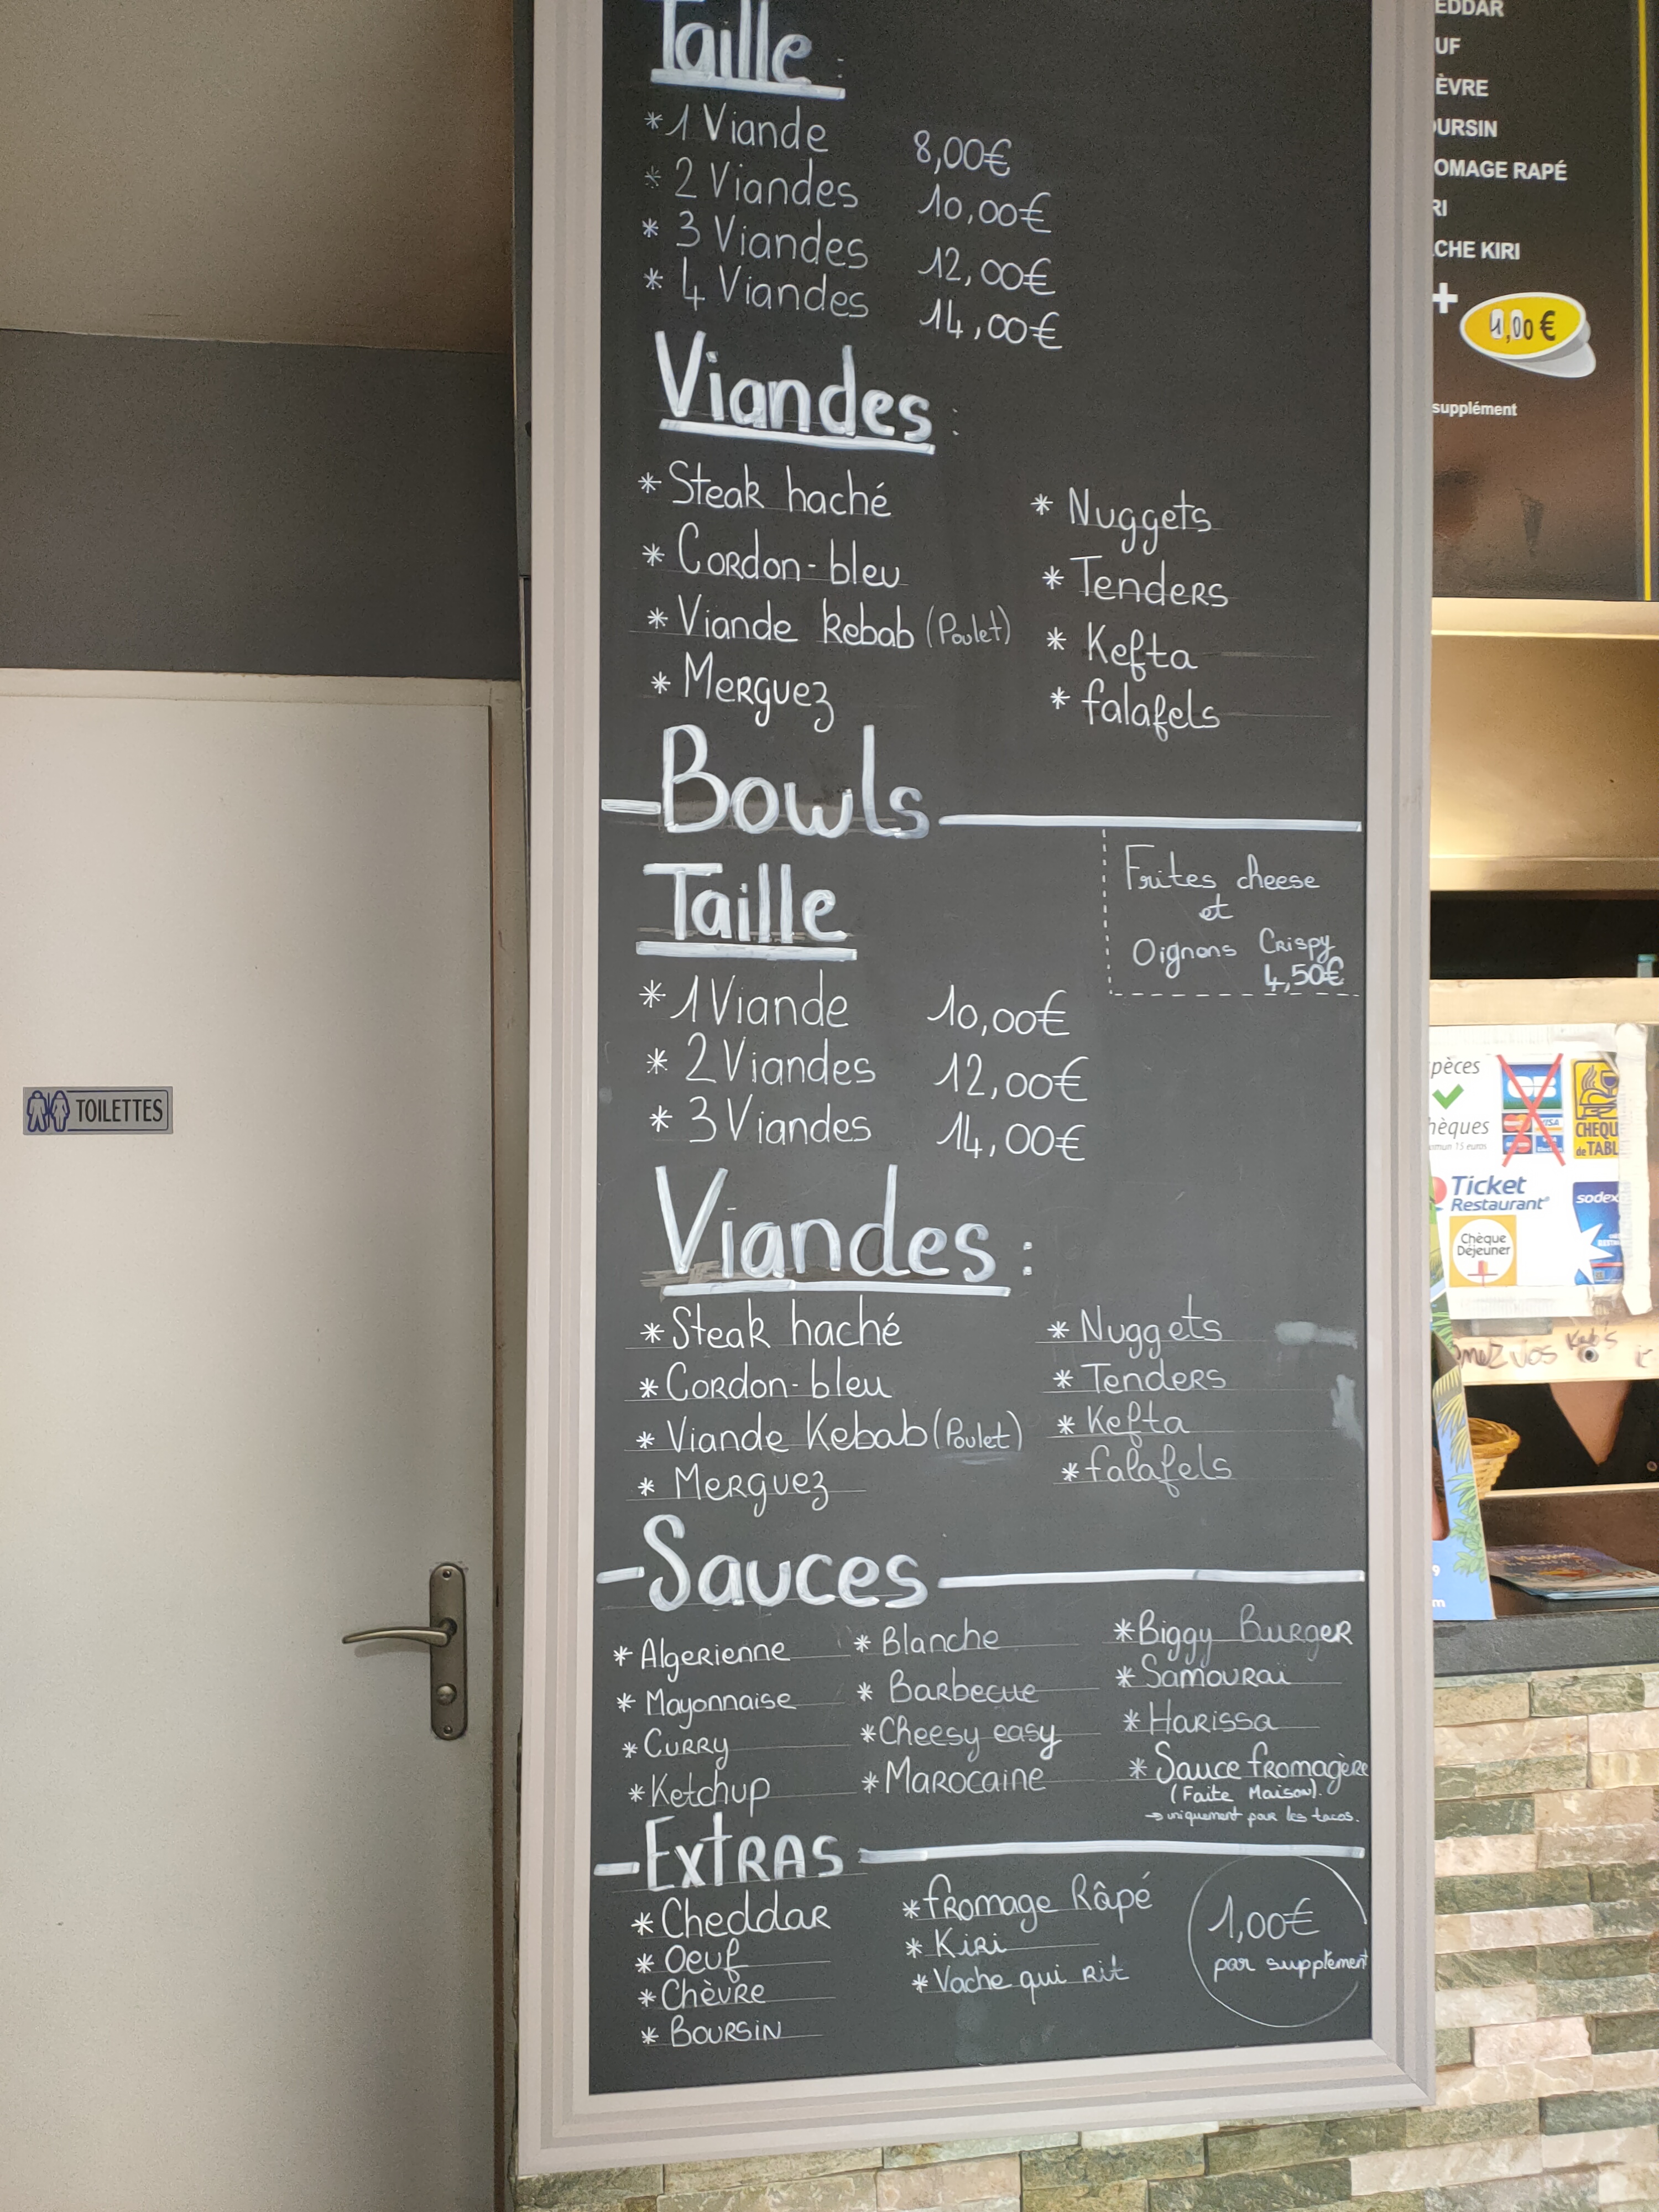 Taille :
* 1 Viande 8,00€
* 2 Viandes 10,00€
* 3 Viandes 12,00€
* 4 Viandes 14,00€
Viandes :
* Steak haché
* Cordon-bleu
* Viande kebab (Poulet)
* Merguez
* Nuggets
* Tenders
* Kefta
* falafels
-Bowls
Frites cheese
et
Oignons Crispy
4,50€
Taille
* 1 Viande 10,00€
* 2 Viandes 12,00€
* 3 Viandes 14,00€
Viandes :
* Steak haché
* Cordon-bleu
* Viande Kebab (Poulet)
* Merguez
* Nuggets
* Tenders
* Kefta
* falafels
-Sauces
* Algerienne
* Mayonnaise
* Curry
* Ketchup
* Blanche
* Barbecue
* Cheesy easy
* Marocaine
* Biggy Burger
* Samouraï
* Harissa
* Sauce fromagère
(Faite Maison).
→ uniquement pour les tacos.
-Extras
* Cheddar
* Oeuf
* Chèvre
* Boursin
* fromage Râpé
* Kiri
* Vache qui rit
1,00€
par supplément
TOILETTES
EDDAR
UF
ÈVRE
OURSIN
OMAGE RAPÉ
RI
CHE KIRI
+
1,00 €
supplément
pèces
hèques
VISA
CHEQU
de TABL
Ticket
Restaurant
sodex
Chèque
Déjeuner
vos